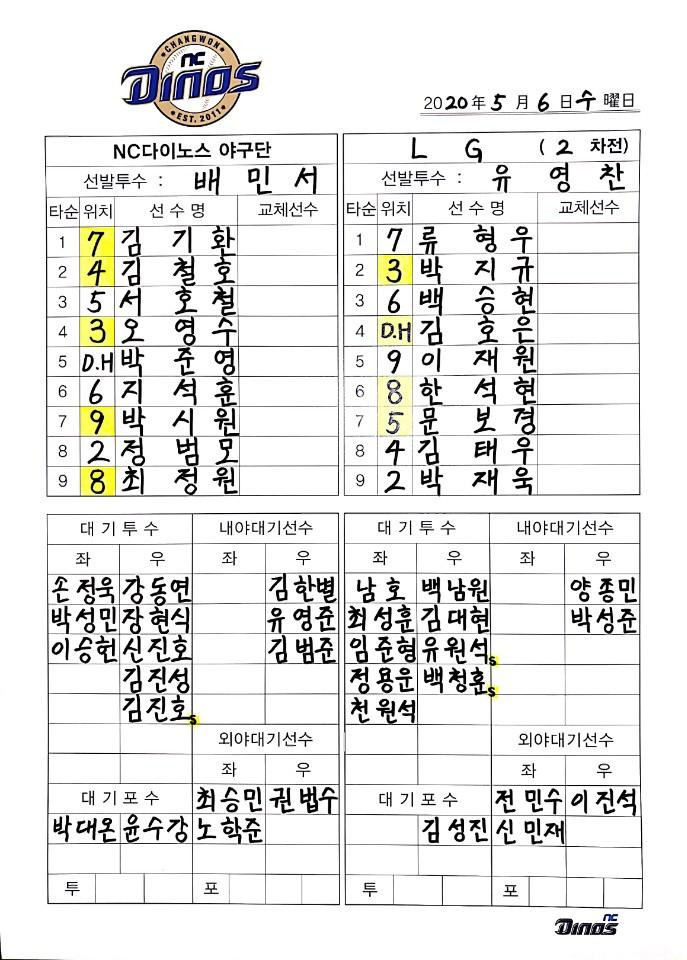 CHANGWON
NC
DINOS
EST. 2011
2020年 5 月 6 日 수 曜日
NC다이노스 야구단
선발투수 : 배 민 서
타순 위치 선 수 명 교체선수
1 7 김 기 환
2 4 김 철 호
3 5 서 호 철
4 3 오 영 수
5 D.H 박 준 영
6 6 지 석 훈
7 9 박 시 원
8 2 정 범 모
9 8 최 정 원
L G ( 2 차전)
선발투수 : 유 영 찬
타순 위치 선 수 명 교체선수
1 7 류 형 우
2 3 박 지 규
3 6 백 승 현
4 D.H 김 호 은
5 9 이 재 원
6 8 한 석 현
7 5 문 보 경
8 4 김 태 우
9 2 박 재 욱
대 기 투 수 내야대기선수
좌 우 좌 우
손정욱 강동연 김한별
박성민 장현식 유영준
이승헌 신진호 김범준
김진성
김진호 s
외야대기선수
좌 우
대 기 포 수 최승민 권법수
박대온 윤수강 노학준
투 포
대 기 투 수 내야대기선수
좌 우 좌 우
남호 백남원 양종민
최성훈 김대현 박성준
임준형 유원석 s
정용운 백청훈 s
천원석
외야대기선수
좌 우
대 기 포 수 전민수 이진석
김성진 신민재
투 포
NC
DINOS